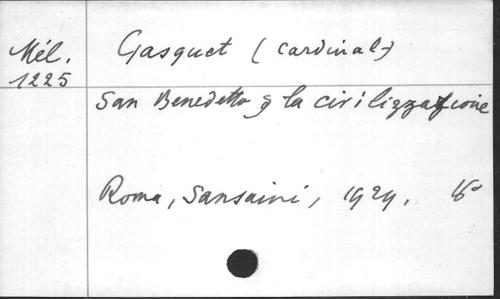 Mél.
1225
Gasquet (cardinal)
San Benedetto e la civilizzazione
Roma, Sansaini, 1929. 8°